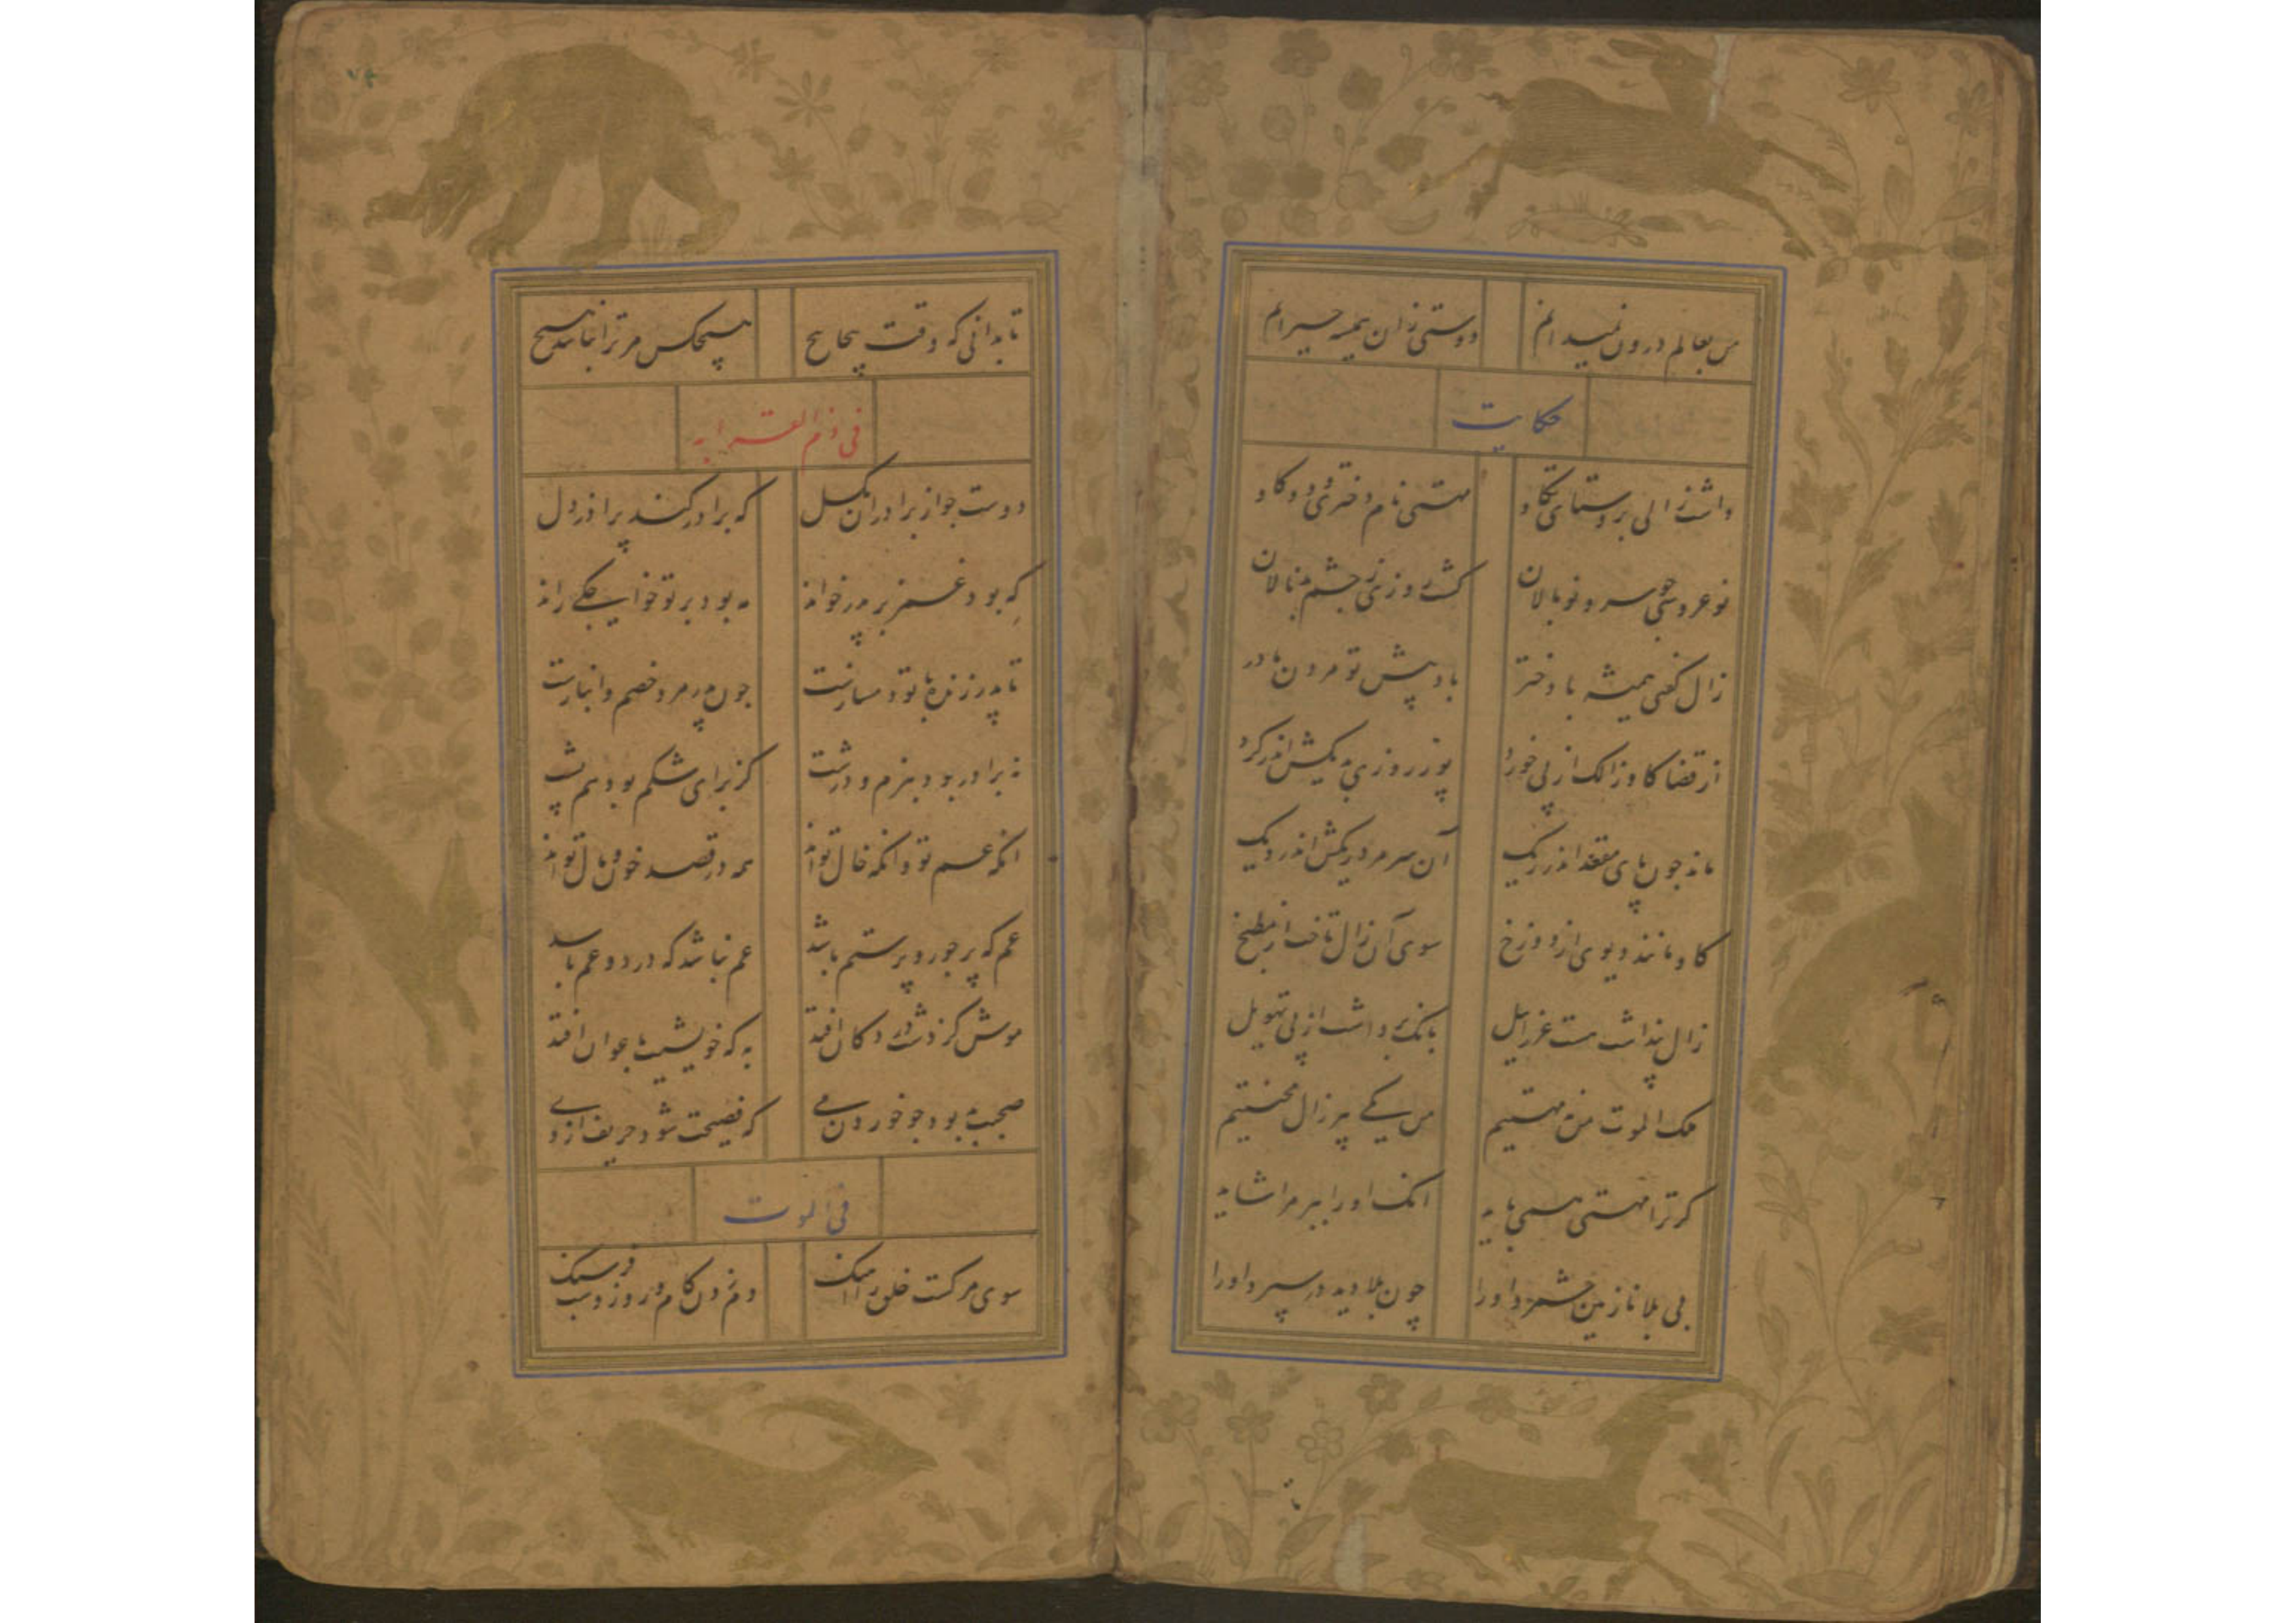 من بعالم درون نمیدانم دوستی زان همیشه حیرانم
حکایت
داشت زالی بروستای تکاو مهستی نام دختری و دو کاو
نو عروسی چو سرو نو بالان کشت روزی ز چشم بد نالان
زال کفتی همیشه با دختر باد پیش تو مردن مادر
از قضا کاو زالک از پی خورد پوز روزی بدیکش اندر کرد
ماند چون پای مقعد اندر ریک آن سر مرد ریکش اندر دیک
کاو مانند دیوی از دوزخ سوی آن زال تاخت از مطبخ
زال پنداشت هست عزراییل بانک برداشت از پی تهویل
ملک الموت من نه مهستیم من یکی پیر زال محنتیم
کر ترا مهستی همی باید آنک او را ببر مرا شاید
بی بلا نازنین شمرد او را چون بلا دید در سپرد او را
تا بدانی که وقت پیچاپیچ هیچکس مر ترا نباشد هیچ
فی ذم القرابه
دوست جو از برادران بکسل که برادر کند پر آذر دل
که بود غمز بر پدر خواند مه بود بر تو خواجکی راند
تا پدر زنده با تو دمسازست چون پدر مرد خصم و انبازست
نه برادر بود بنرم و درشت کز برای شکم بود هم پشت
آنکه عم تو وانکه خال تواند همه در قصد خون و مال تواند
عم که پر جور و پر ستم باشد عم نباشد که درد و غم باشد
موش کز دشت در دکان افتد به که خویشیت با عوان افتد
صحبت بد بود چو خوردن می که فضیحت شود حریف از وی
فی الموت
سوی مرکست خلق را آهنک دم زدن کام و روز و شب فرسنک